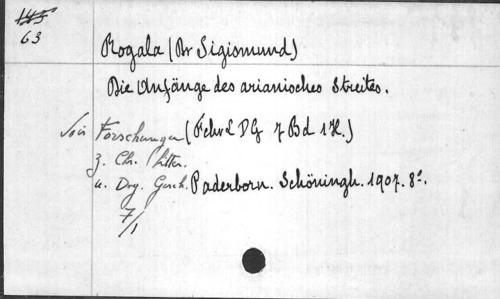 143
63
Rogala (Dr Sigismund)
Die Anfänge des arianisches Streites.
Voir Forschungen (Fchr L DG 7 Bd 1 H.)
z. Chr. Litter.
u. Dog. Gesch. Paderborn. Schöningh. 1907. 8°.
7/1